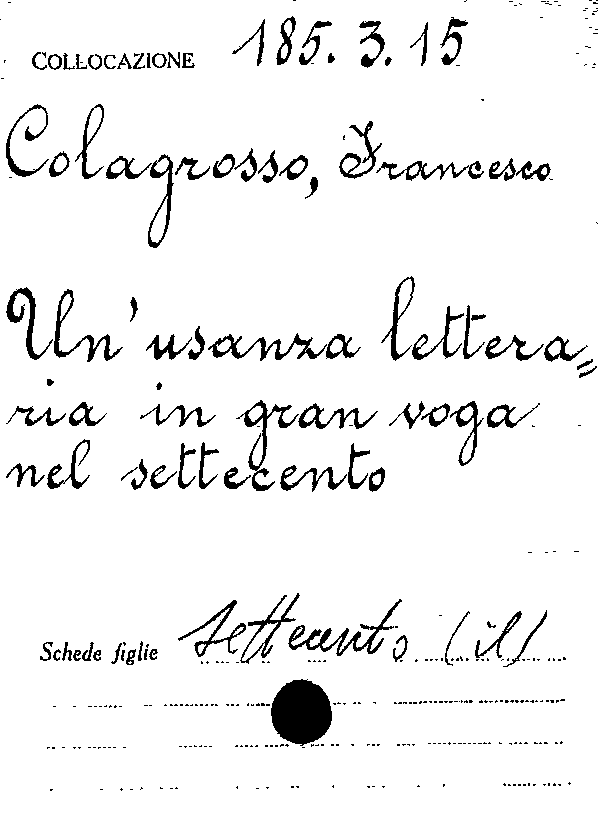 COLLOCAZIONE 185. 3. 15
Colagrosso, Francesco
Un' usanza lettera=
ria in gran voga
nel settecento
Schede figlie settecento (il)